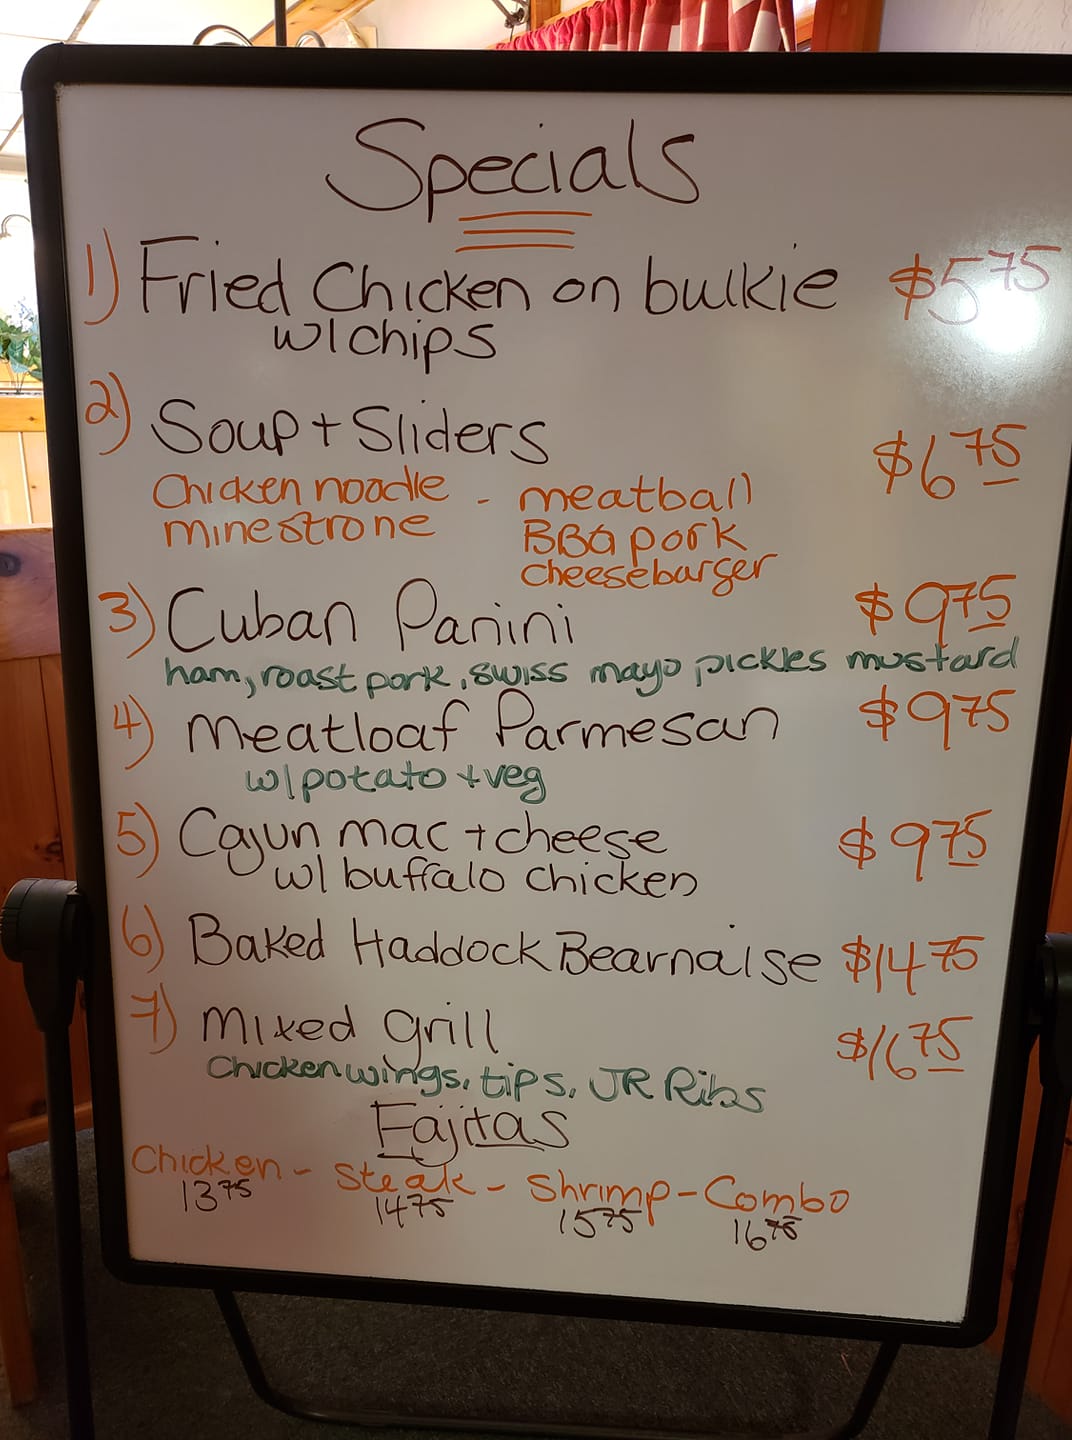 Specials
1) Fried Chicken on bulkie $5 75
w/chips
2) Soup + Sliders $6 75
Chicken noodle - meatball
minestrone BBQ pork
cheeseburger
3) Cuban Panini $9 75
ham, roast pork, swiss mayo pickles mustard
4) Meatloaf Parmesan $9 75
w/potato + veg
5) Cajun mac + cheese $9 75
w/ buffalo chicken
6) Baked Haddock Bearnaise $14 75
7) Mixed grill $16 75
Chicken wings, tips, JR Ribs
Fajitas
Chicken - Steak - Shrimp - Combo
13 75 14 75 15 75 16 75